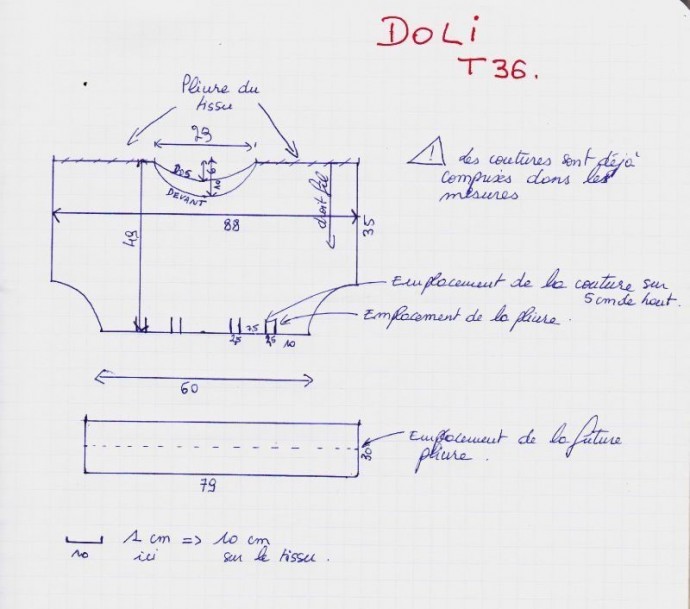 DOLi
T36.
Pliure du
tissu
29
Dos
6
DEVANT
10
droit fil
⚠ Les coutures sont déjà
comprises dans les
mesures
88
35
49
Emplacement de la couture sur
5 cm de haut.
Emplacement de la pliure.
2,5
7,5
2,5
10
60
Emplacement de la future
pliure.
30
79
1 cm => 10 cm
10
ici sur le tissu.